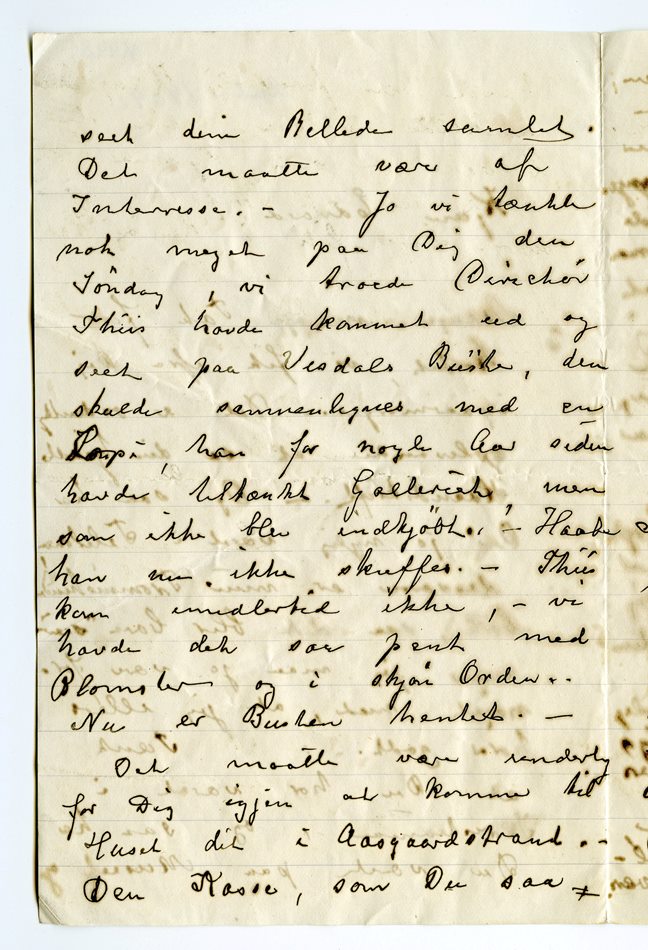 seet dine Billeder samlet.
Det maatte være af
Interresse. – Jo vi tænkte
nok meget paa Dig den
Söndag, vi troede Direktör
Thiis havde kommet ud og
seet paa Visdals Büste, den
skulde sammenlignes med en
han for nogle Aar siden
havde tiltænkt Galleriet, men
som ikke blev indkjöbt. – Haaber
han nu ikke skuffes. – Thiis
kom imidlertid ikke, – vi
havde det saa pent med
Blomster og i skjøn Orden..
Nu er Busten hentet. –
Det maatte være underlig
for Dig igjen at komme til
Huset dit i Aasgaardstrand. –
Den Kasse, som Du saa